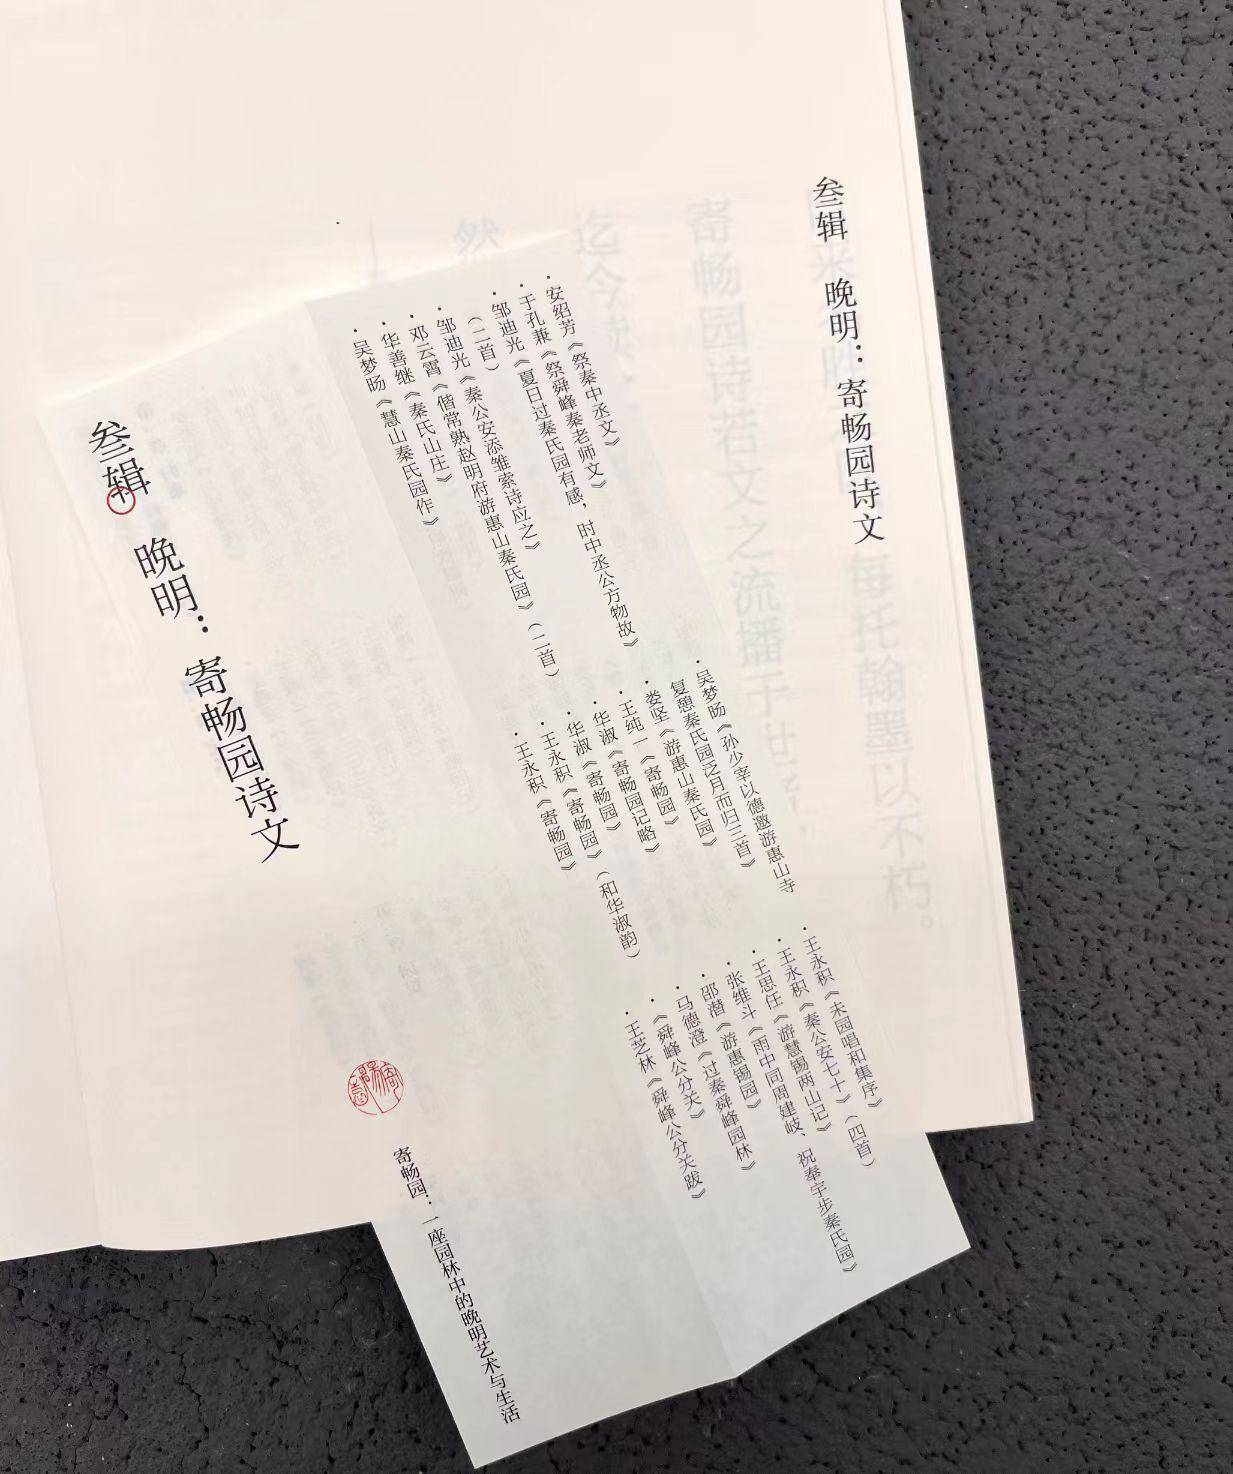 叁辑 晚明：寄畅园诗文
·安绍芳《祭秦中丞文》
·于孔兼《祭舜峰秦老师文》
·邹迪光《夏日过秦氏园有感，时中丞公方物故》
（二首）
·邹迪光《秦公安添雏索诗应之》
·邓云霄《偕常熟赵明府游惠山秦氏园》（二首）
·华善继《秦氏山庄》
·吴梦旸《慧山秦氏园作》
·吴梦旸《孙少宰以德邀游惠山寺
复憩秦氏园泛月而归三首》
·娄坚《游惠山秦氏园》
·王纯一《寄畅园》
·华淑《寄畅园记略》
·华淑《寄畅园》
·王永积《寄畅园》（和华淑韵）
·王永积《寄畅园》
·王永积《未园唱和集序》
·王永积《秦公安七十》（四首）
·王思任《游慧锡两山记》
·张维斗《雨中同周建岐、祝奉宇步秦氏园》
·邵潜《游惠锡园》
·马德澄《过秦舜峰园林》
·《舜峰公分关》
·王芝林《舜峰公分关跋》
叁辑 晚明：寄畅园诗文
寄畅园：一座园林中的晚明艺术与生活
寄畅园诗若文之流播于世
每托翰墨以不朽。
迄今
然